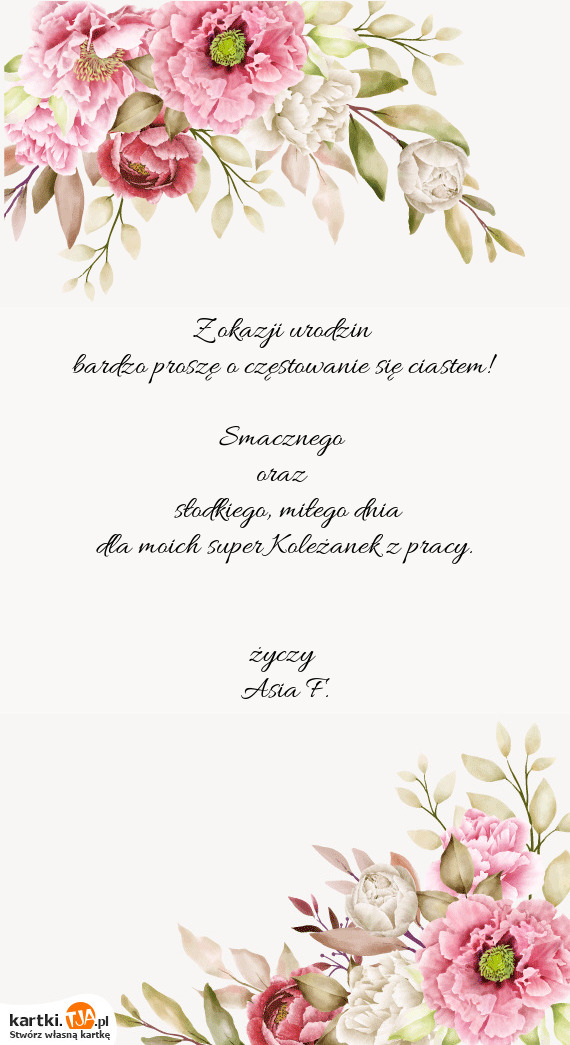 Z okazji urodzin
bardzo proszę o częstowanie się ciastem!
Smacznego
oraz
słodkiego, miłego dnia
dla moich super Koleżanek z pracy.
życzy
Asia F.
kartki.TJA.pl
Stwórz własną kartkę